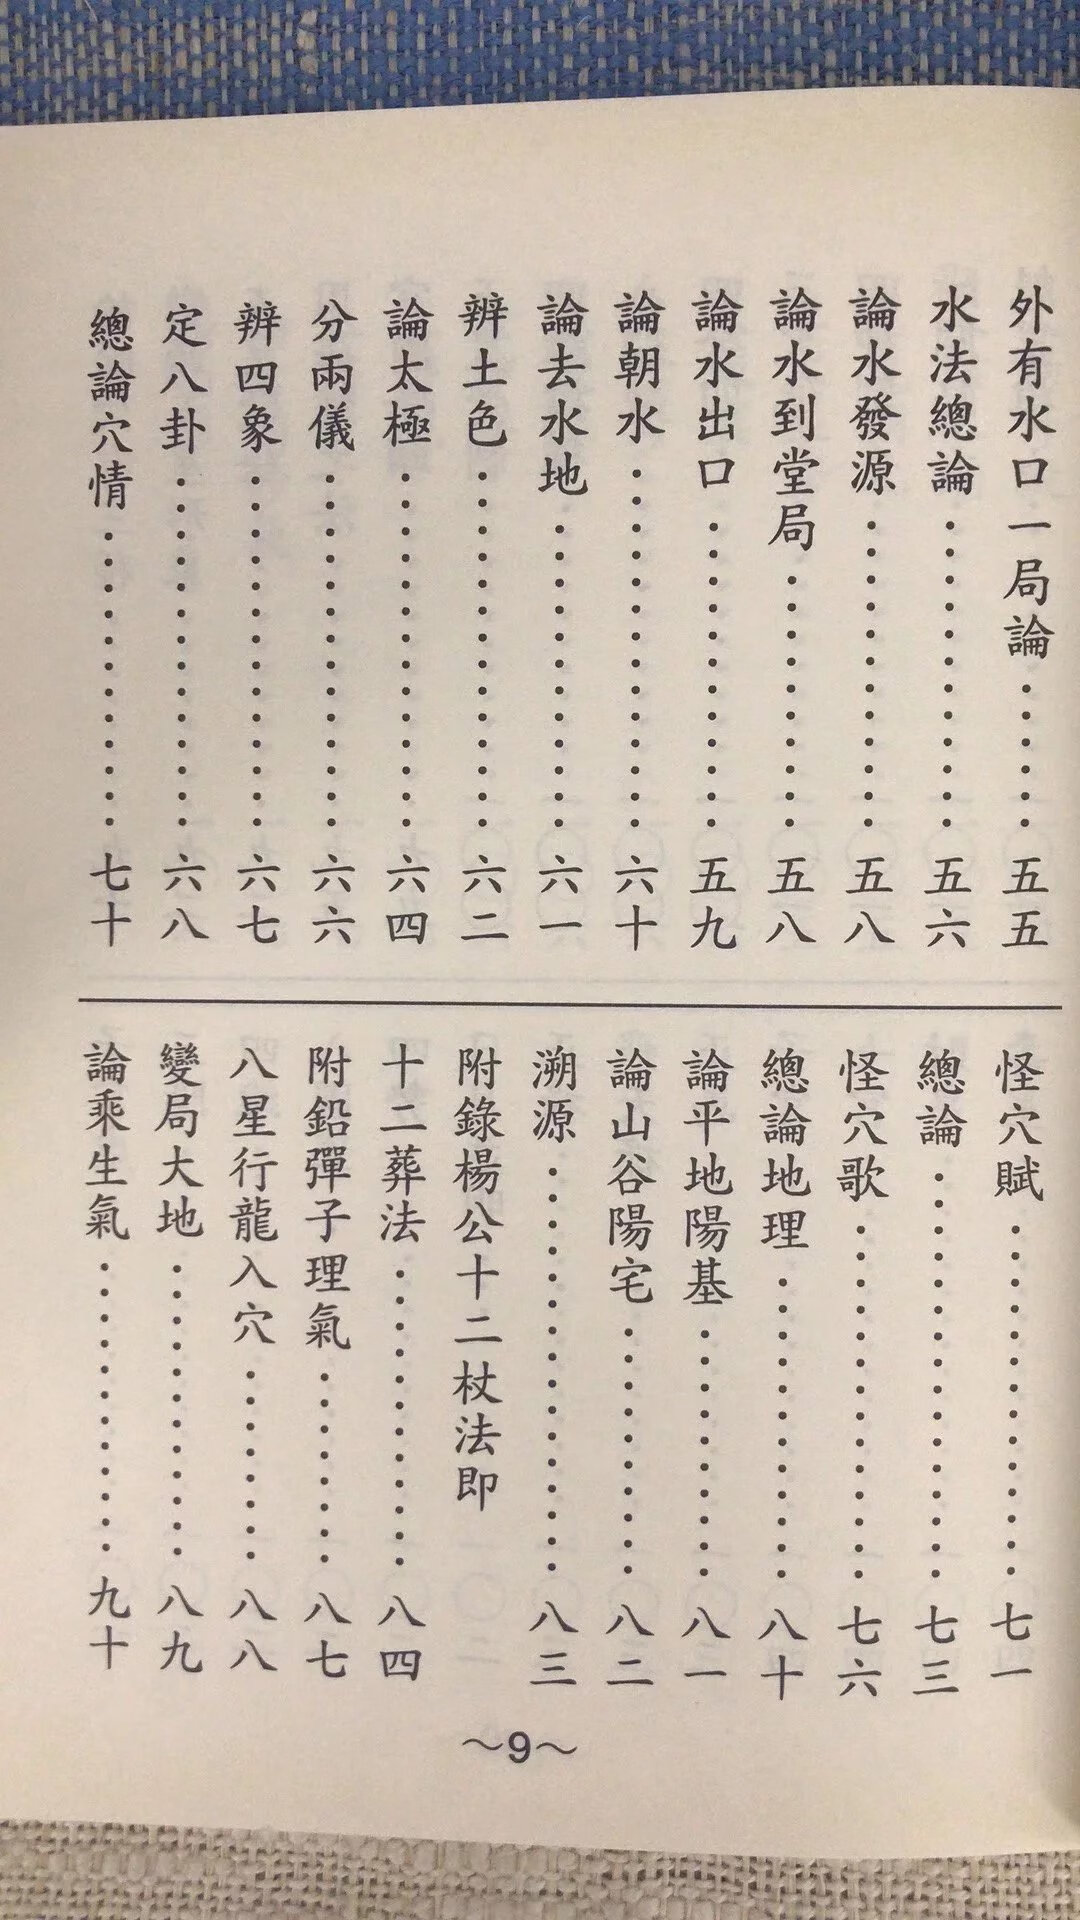 外有水口一局論‥‥‥五五
水法總論‥‥‥‥‥‥五六
論水發源‥‥‥‥‥‥五八
論水到堂局‥‥‥‥‥五八
論水出口‥‥‥‥‥‥五九
論朝水‥‥‥‥‥‥‥六十
論去水地‥‥‥‥‥‥六一
辨土色‥‥‥‥‥‥‥六二
論太極‥‥‥‥‥‥‥六四
分兩儀‥‥‥‥‥‥‥六六
辨四象‥‥‥‥‥‥‥六七
定八卦‥‥‥‥‥‥‥六八
總論穴情‥‥‥‥‥‥七十
怪穴賦‥‥‥‥‥‥‥七一
總論‥‥‥‥‥‥‥‥七三
怪穴歌‥‥‥‥‥‥‥七六
總論地理‥‥‥‥‥‥八十
論平地陽基‥‥‥‥‥八一
論山谷陽宅‥‥‥‥‥八二
溯源‥‥‥‥‥‥‥‥八三
附錄楊公十二杖法即
十二葬法‥‥‥‥‥‥八四
附鉛彈子理氣‥‥‥‥八七
八星行龍入穴‥‥‥‥八八
變局大地‥‥‥‥‥‥八九
論乘生氣‥‥‥‥‥‥九十
～9～